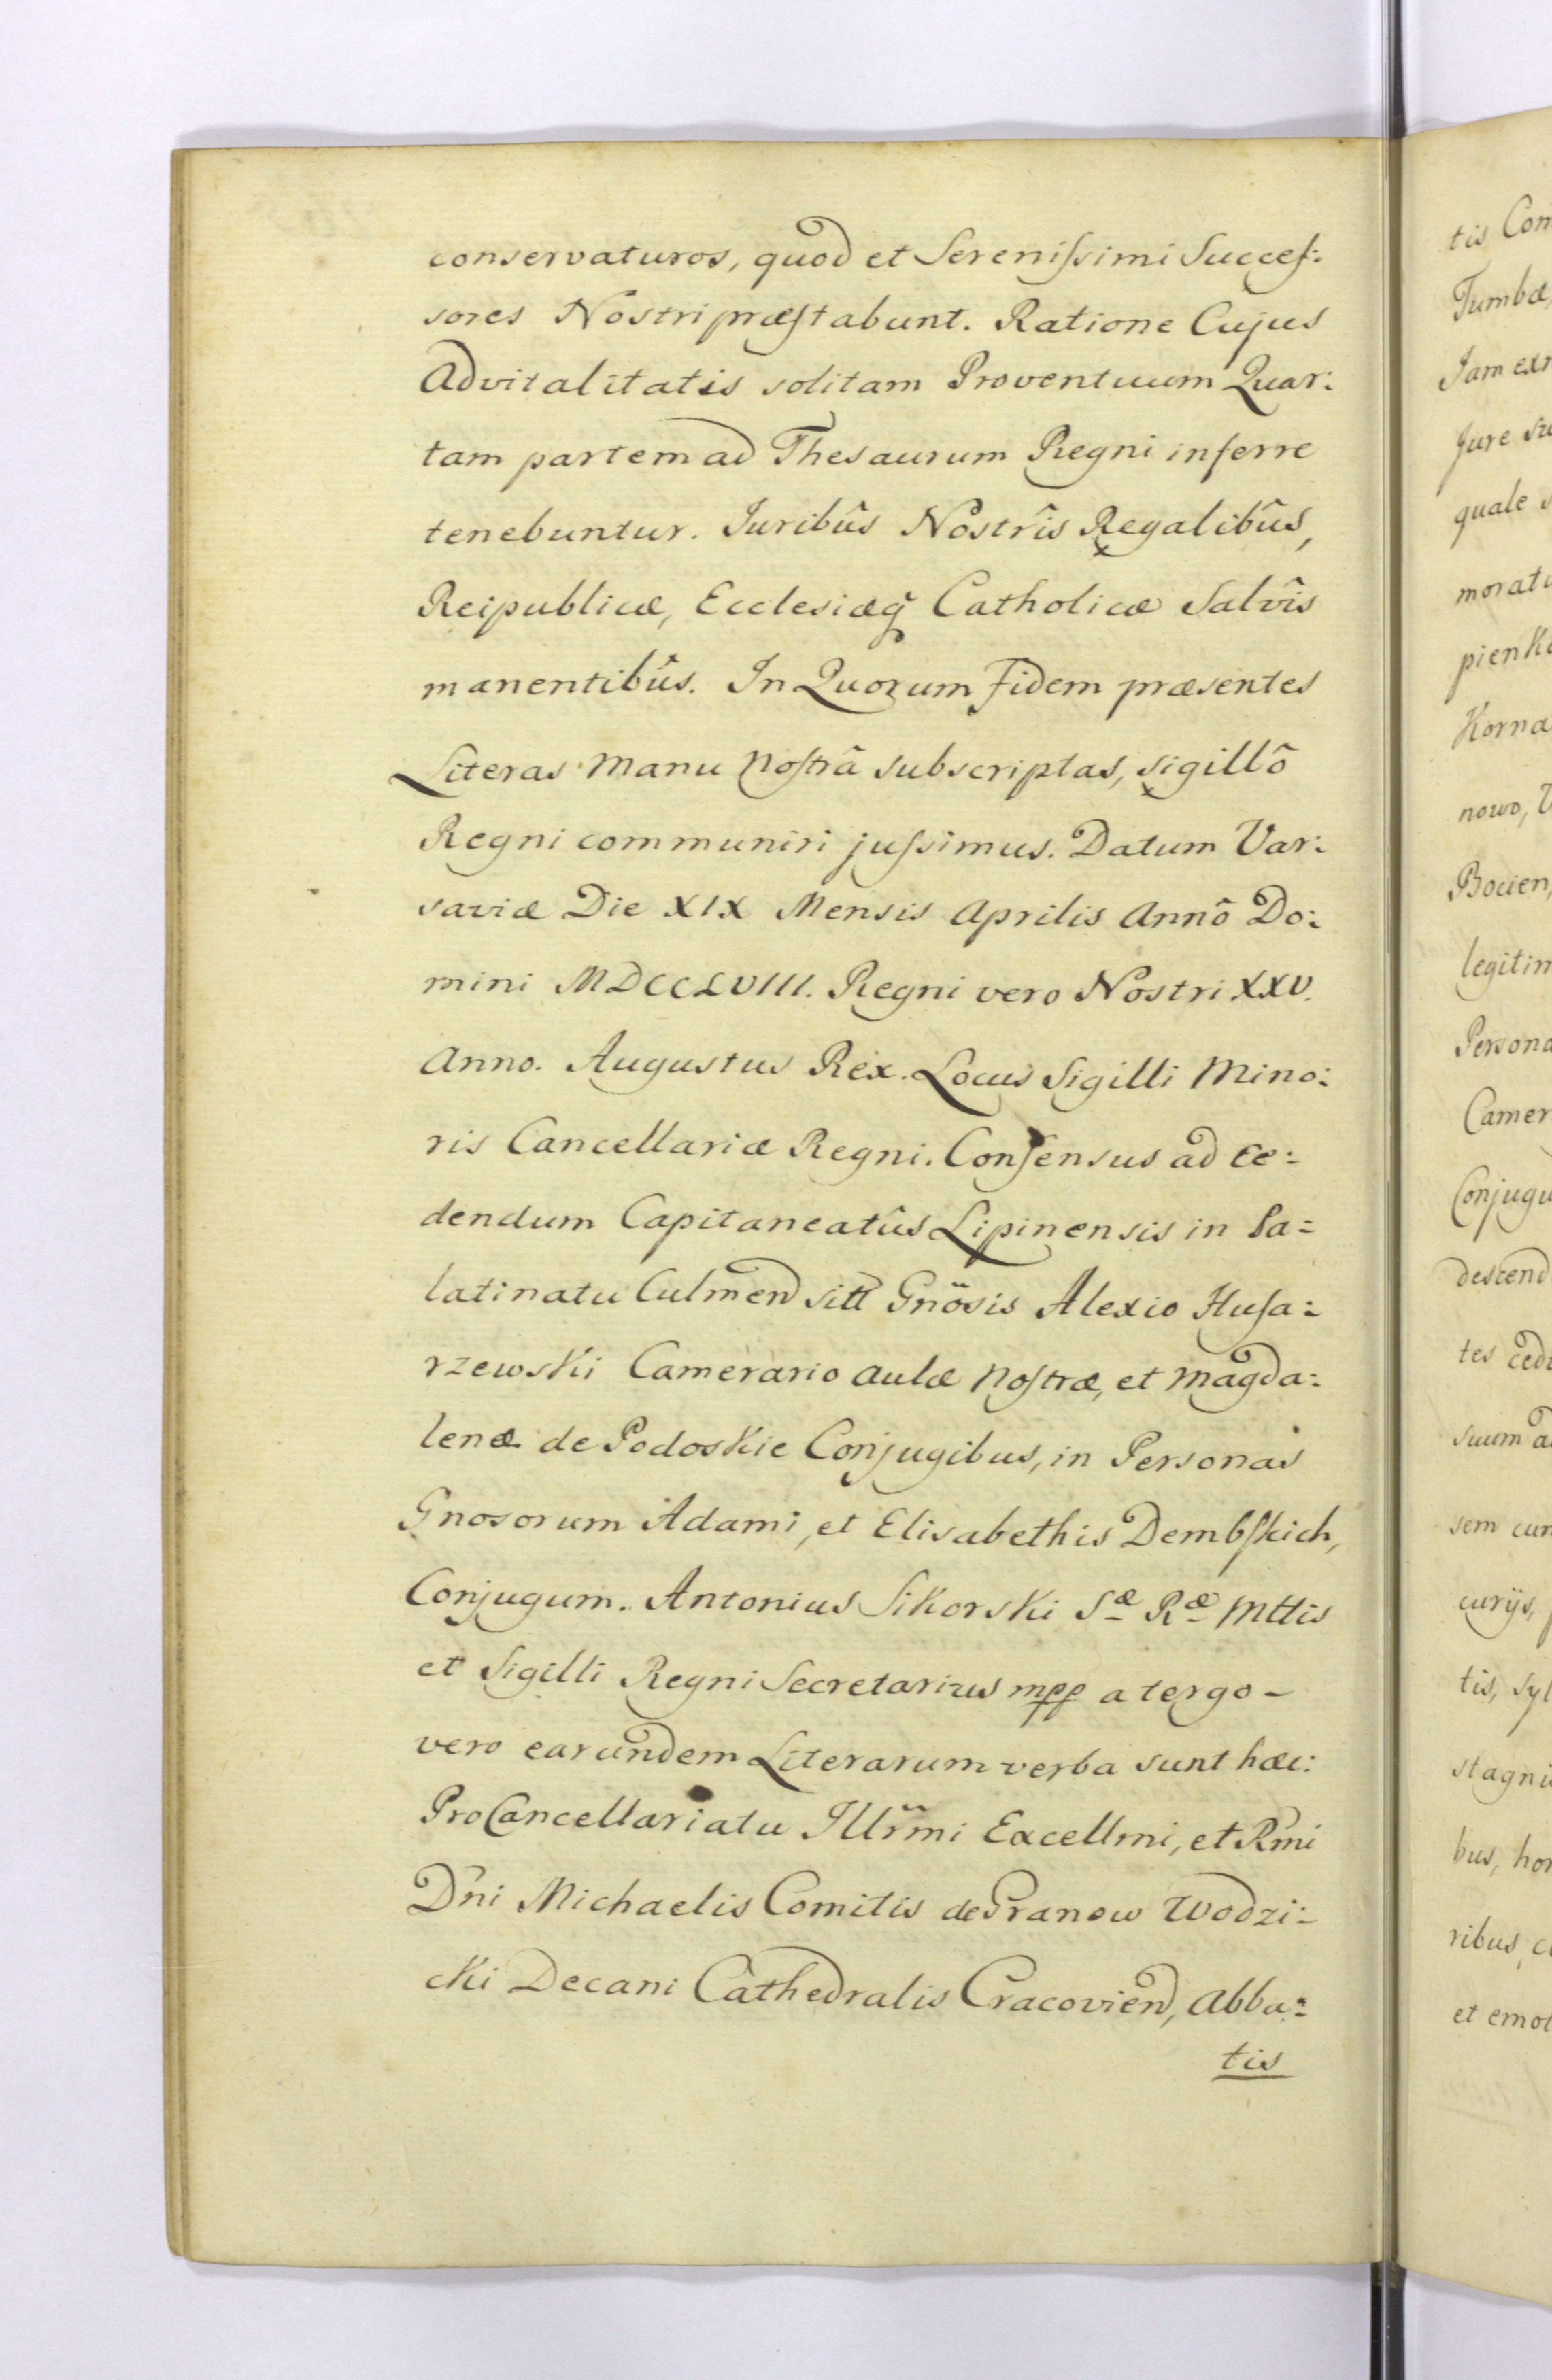 conservaturos, quod et Sereniſsimi Succeſ:
sores Nostri præſtabunt. Ratione Cujus
Advitalitatis solitam Proventuum Quar:
tam partem ad Thesaurum Regni inferre
tenebuntur. Iuribûs Nostrîs Regalibûs,
Reipublicæ, Ecclesiæq̃ Catholicæ Salvîs
manentibûs. In Quorum Fidem præsentes
Literas Manu Noſtrâ subscriptas, sigillô
Regni communiri juſsimus. Datum Var:
saviæ Die XIX Mensis Aprilis Annô Do:
mini MDCCLVIII. Regni vero Nostri XXV.
Anno. Augustus Rex. Locus Sigilli Mino:
ris Cancellariæ Regni. Conſensus ad ce:
dendum Capitaneatûs Lipinensis in Pa=
latinatu Culmen̄ sitt Gnösis Alexio Huſa:
rzewski Camerario Aulæ Noſtræ, et Magda:
lenæ de Podoskie Conjugibus, in Personas
Gnosorum Adami, et Elisabethis Dembſkich,
Conjugum. Antonius Sikorski Sæ Ræ Mttis
et Sigilli Regni Secretarius mpp a tergo –
vero earundem Literarum verba sunt hæc:
ProCancellariatu Illr̃mi Excellmi, et Rmi
Dni Michaelis Comitis de Granow Wodzi:
cki Decani Cathedralis Cracovien̄, Abba:
tis
tis Com
Tumbæ,
Jam ex
Jure su
quale s
moratu
pienko
Korna
nowo,
Bocien,
legitim
Persona
Camer
Conjugu
descend
tes cede
suum a
sem cum
curijs,
tis, syl
stagni
bus, hor
ribus, c
et emol